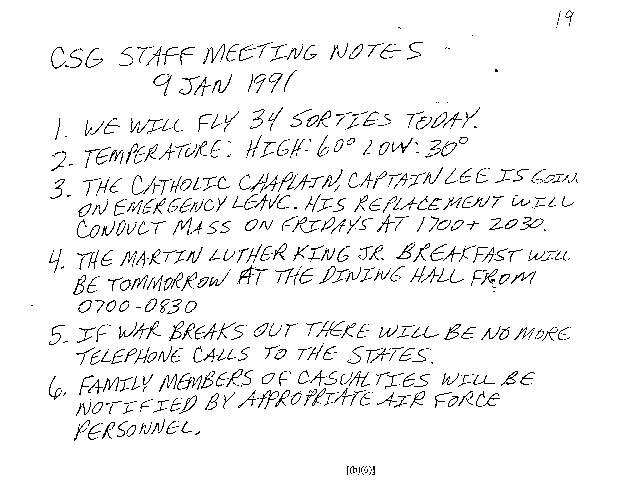 19
CSG STAFF MEETING NOTES
9 JAN 1991
1. WE WILL FLY 34 SORTIES TODAY.
2. TEMPERATURE: HIGH: 60° LOW: 30°
3. THE CATHOLIC CHAPLAIN, CAPTAIN LEE IS GOIN
ON EMERGENCY LEAVE. HIS REPLACEMENT WILL
CONDUCT MASS ON FRIDAYS AT 1700 + 2030.
4. THE MARTIN LUTHER KING JR. BREAKFAST WILL
BE TOMMORROW AT THE DINING HALL FROM
0700-0830
5. IF WAR BREAKS OUT THERE WILL BE NO MORE
TELEPHONE CALLS TO THE STATES.
6. FAMILY MEMBERS OF CASUALTIES WILL BE
NOTIFIED BY APPROPRIATE AIR FORCE
PERSONNEL.
[(b)(6)]